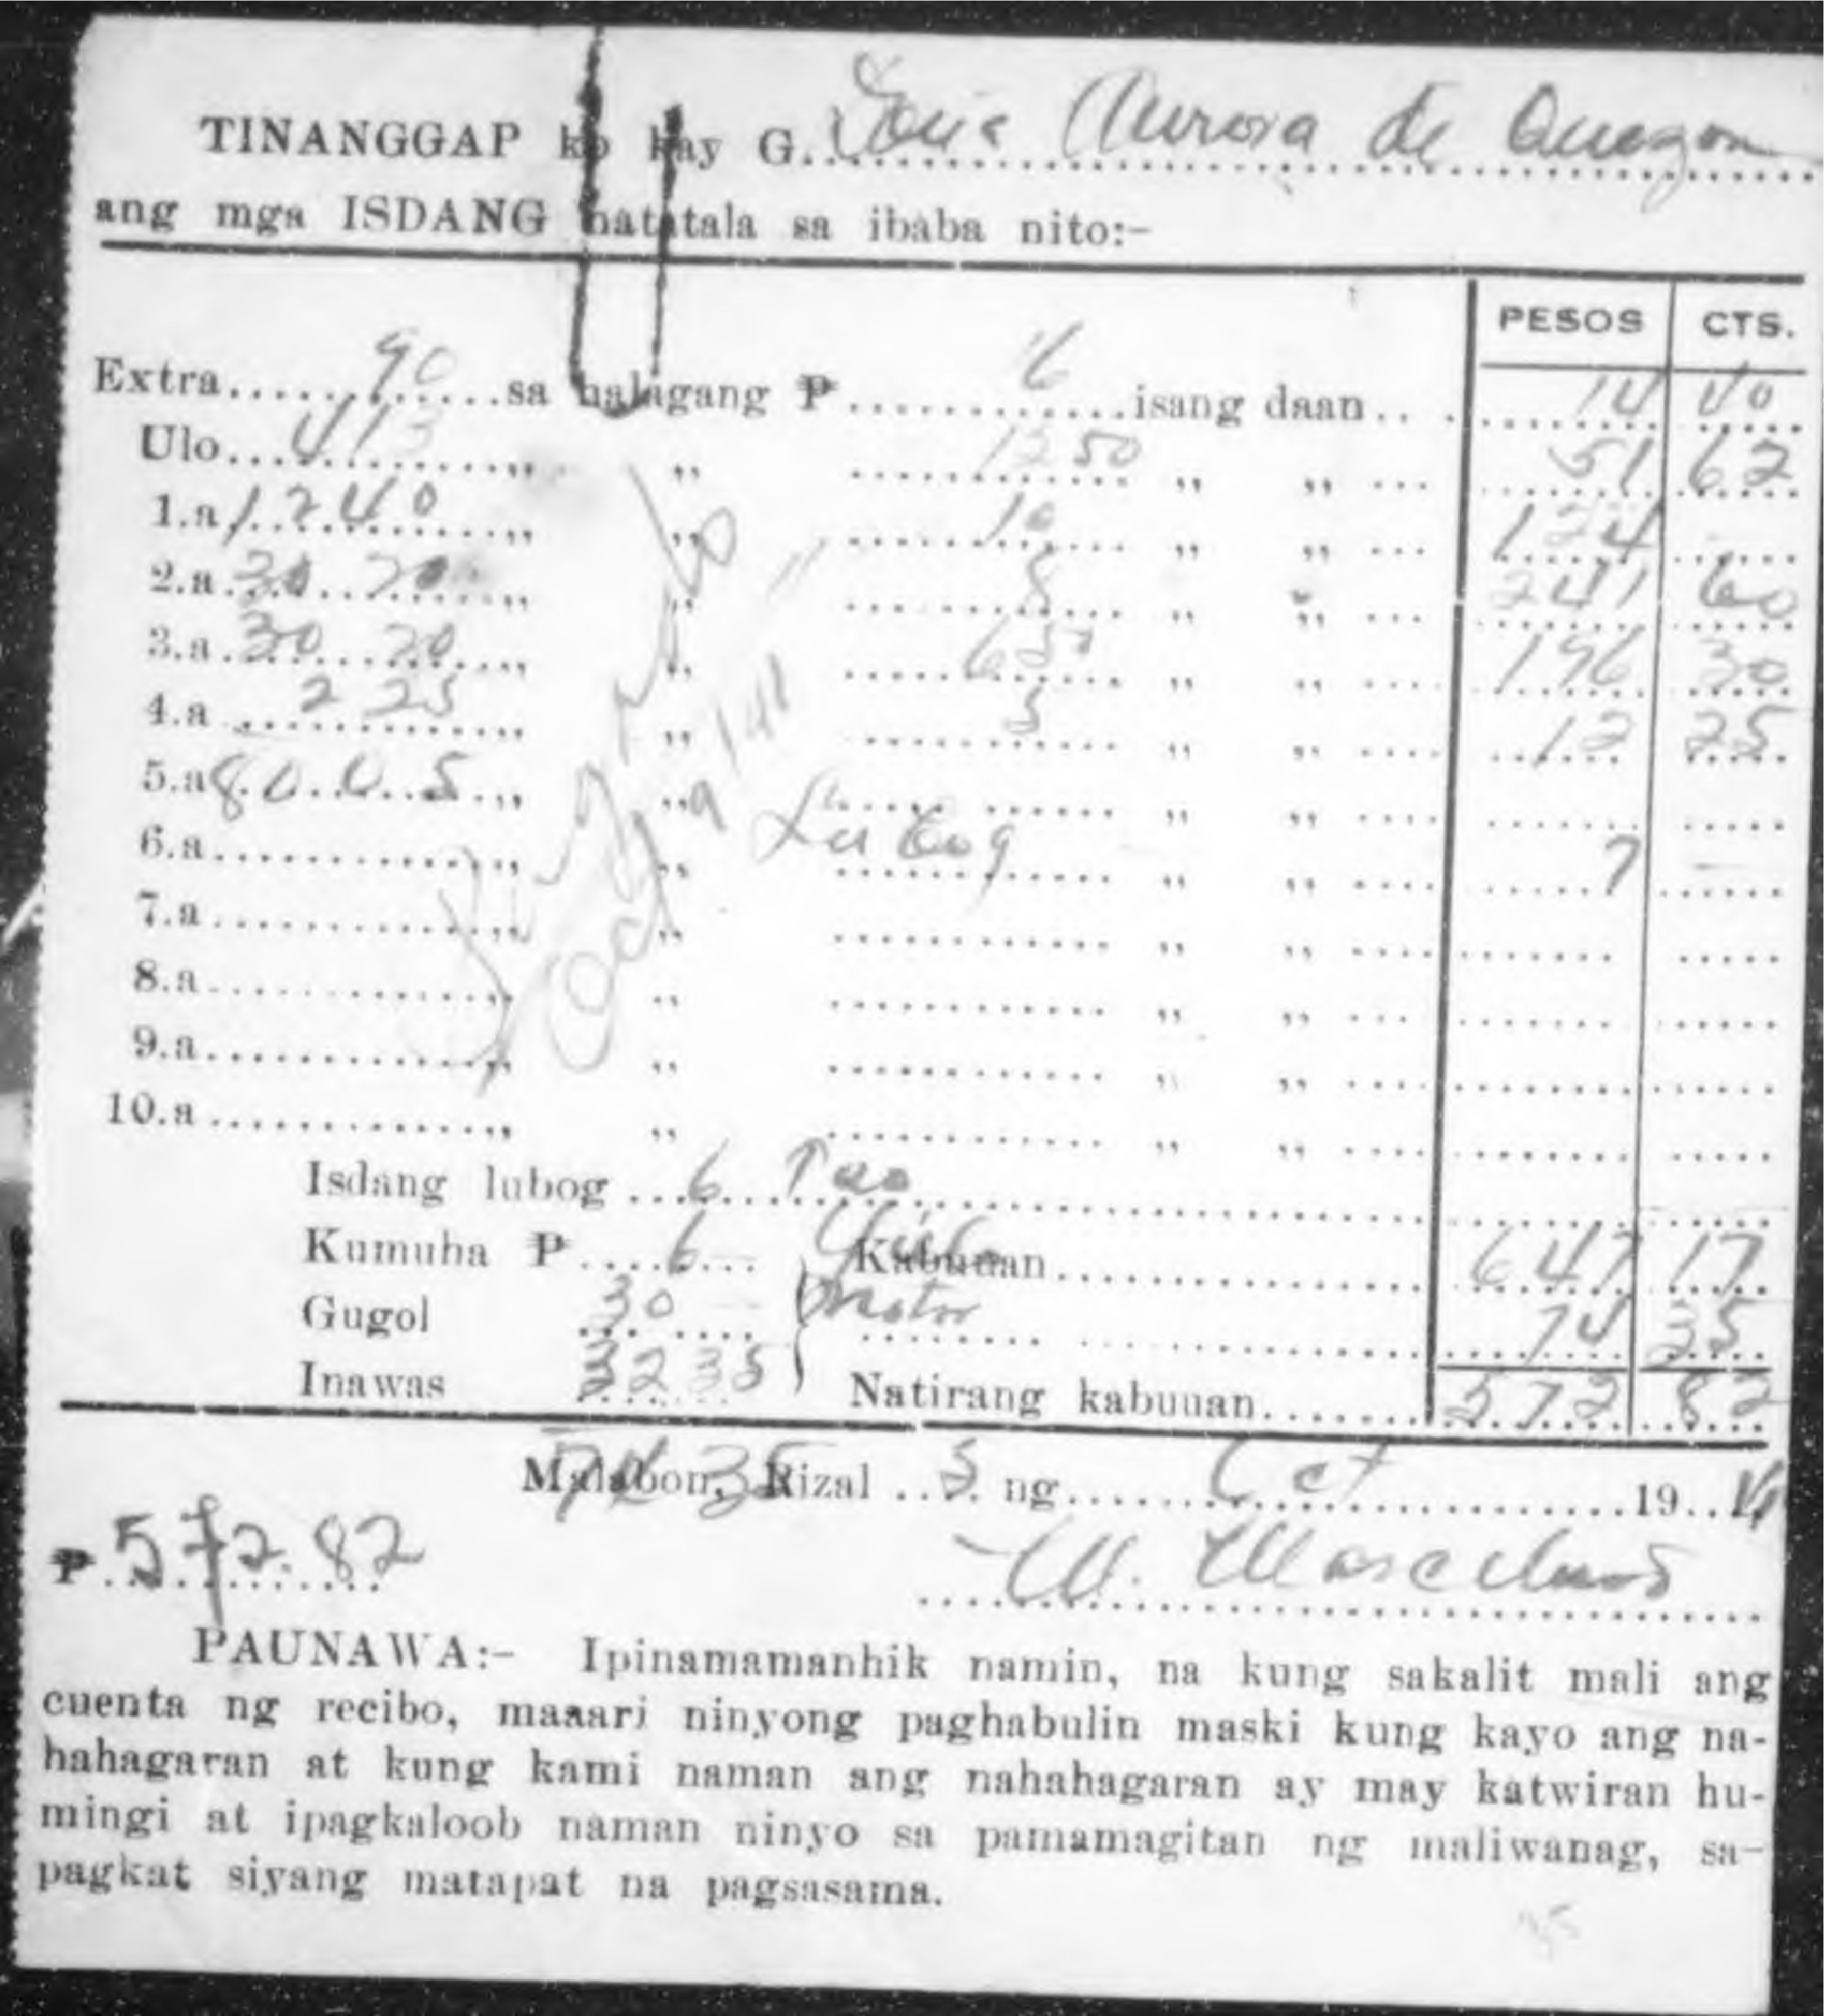 TINANGGAP ko kay G. Doña Aurora de Quezon
ang mga ISDANG natatala sa ibaba nito:-
PESOS CTS.
Extra 90 sa halagang ₱ 16 isang daan 14 40
Ulo 413 ,, ,, 12 50 ,, ,, 51 62
1.a 1240 ,, ,, 10 ,, ,, 124
2.a 30 20 ,, ,, 8 ,, ,, 241 60
3.a 30 20 ,, ,, 6 50 ,, ,, 196 30
4.a 2 25 ,, ,, 5 ,, ,, 12 25
5.a 80 0 5 ,, ,, ,, ,,
6.a ,, ,, Lubog ,, ,, 7
7.a ,, ,, ,, ,,
8.a ,, ,, ,, ,,
9.a ,, ,, ,, ,,
10.a ,, ,, ,, ,,
Oct 9/41
Isdang lubog 6 Tao
Kumuha ₱ 6 Kabuuan 647 17
Gugol 30 motor 74 35
Inawas 32 35 Natirang kabuuan 572 82
74 35
Malabon, Rizal 3 ng Oct 1941
₱ 572.82 M. Marcelino
PAUNAWA:- Ipinamamanhik namin, na kung sakalit mali ang
cuenta ng recibo, maaari ninyong paghabulin maski kung kayo ang na-
hahagaran at kung kami naman ang nahahagaran ay may katwiran hu-
mingi at ipagkaloob naman ninyo sa pamamagitan ng maliwanag, sa-
pagkat siyang matapat na pagsasama.